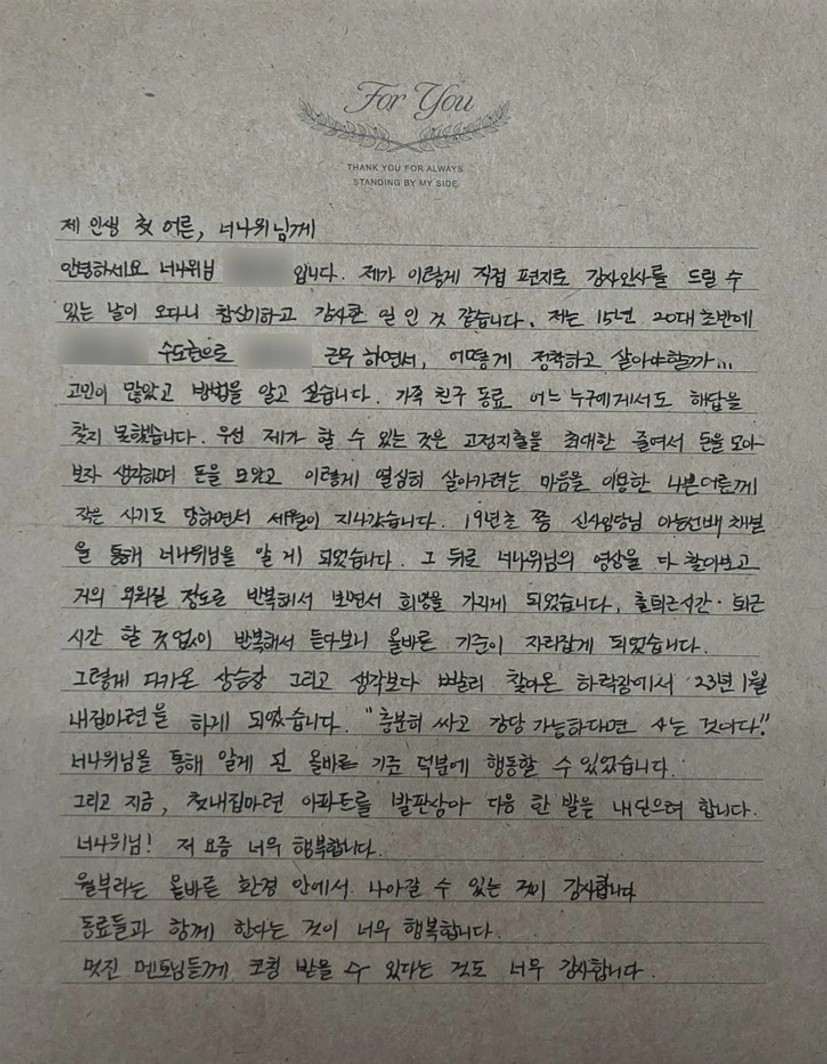 For You
THANK YOU FOR ALWAYS
STANDING BY MY SIDE
제 인생 첫 어른, 너나위님께
안녕하세요 너나위님 입니다. 제가 이렇게 직접 편지로 감사인사를 드릴 수
있는 날이 오다니 참신기하고 감사한 일 인 것 같습니다. 저는 15년 20대 초반에
수도권으로 근무 하면서, 어떻게 정착하고 살아야할까...
고민이 많았고 방법을 알고 싶습니다. 가족 친구 동료 어느 누구에게서도 해답을
찾지 못했습니다. 우선 제가 할 수 있는 것은 고정지출을 최대한 줄여서 돈을 모아
보자 생각하며 돈을 모았고 이렇게 열심히 살아가려는 마음을 이용한 나쁜어른께
작은 사기도 당하면서 세월이 지나갔습니다. 19년초 쯤 신사임당님 아는선배 채널
을 통해 너나위님을 알 게 되었습니다. 그 뒤로 너나위님의 영상을 다 찾아보고
거의 외워질 정도로 반복해서 보면서 희망을 가지게 되었습니다, 출퇴근시간· 퇴근
시간 할 것없이 반복해서 듣다보니 올바른 기준이 자리잡게 되었습니다.
그렇게 다가온 상승장 그리고 생각보다 빨리 찾아온 하락장에서 '23년 1월
내집마련을 하게 되었습니다. "충분히 싸고 감당 가능하다면 사는 것이다."
너나위님을 통해 알게 된 올바른 기준 덕분에 행동할 수 있었습니다.
그리고 지금, 첫내집마련 아파트를 발판삼아 다음 한 발을 내딛으려 합니다.
너나위님! 저 요즘 너무 행복합니다.
월부라는 올바른 환경 안에서 나아갈 수 있는 것이 감사합니다
동료들과 함께 한다는 것이 너무 행복합니다.
멋진 멘토님들께 코칭 받을 수 있다는 것도 너무 감사합니다.